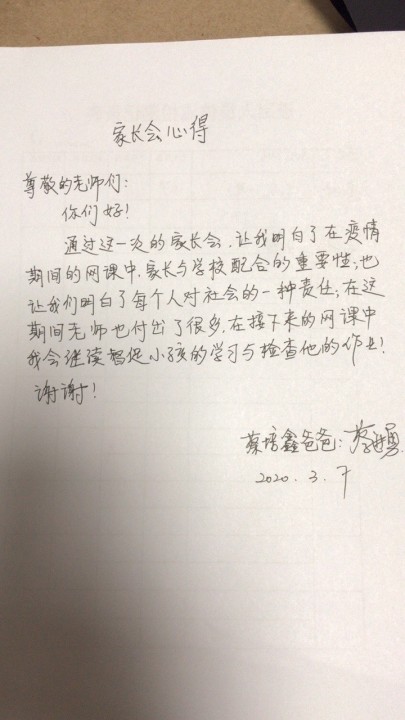 家长会心得
尊敬的老师们：
你们好！
通过这一次的家长会，让我明白了在疫情
期间的网课中，家长与学校配合的重要性，也
让我们明白了每个人对社会的一种责任，在这
期间老师也付出了很多，在接下来的网课中
我会继续督促小孩的学习与检查他的作业！
谢谢！
蔡培鑫爸爸：
2020.3.7